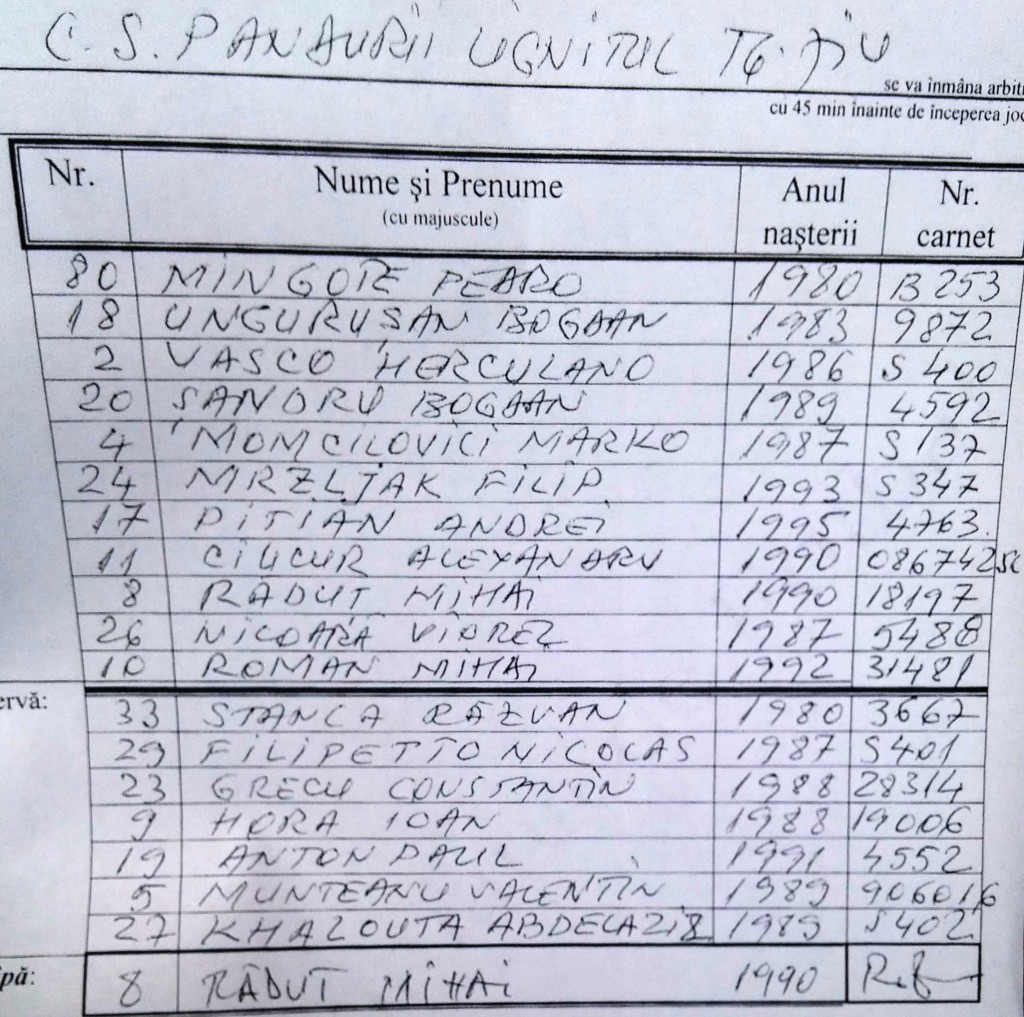 C.S. PANDURII LIGNITUL TG. JIU
se va înmâna arbitr
cu 45 min înainte de începerea joc
Nr. Nume și Prenume (cu majuscule) Anul nașterii Nr. carnet
80 MINGOTE PEDRO 1980 B 253
18 UNGURUȘAN BOGDAN 1983 9872
2 VASCO HERCULANO 1986 S 400
20 ȘANDRU BOGDAN 1989 4592
4 MOMCILOVICI MARKO 1987 S 137
24 MRZLJAK FILIP 1993 S 347
17 PITIAN ANDREI 1995 4763.
11 CIUCUR ALEXANDRU 1990 086742SC
8 RĂDUȚ MIHAI 1990 18197
26 NICOARĂ VIOREL 1987 5488
10 ROMAN MIHAI 1992 31481
ervă:
33 STANCA RĂZVAN 1980 3667
29 FILIPETTO NICOLAS 1987 S401
23 GRECU CONSTANTIN 1988 28314
9 HORA IOAN 1988 19006
19 ANTON PAUL 1991 4552
5 MUNTEANU VALENTIN 1989 906016
27 KHALOUTA ABDELAZIZ 1989 S402
ipă: 8 RĂDUȚ MIHAI 1990